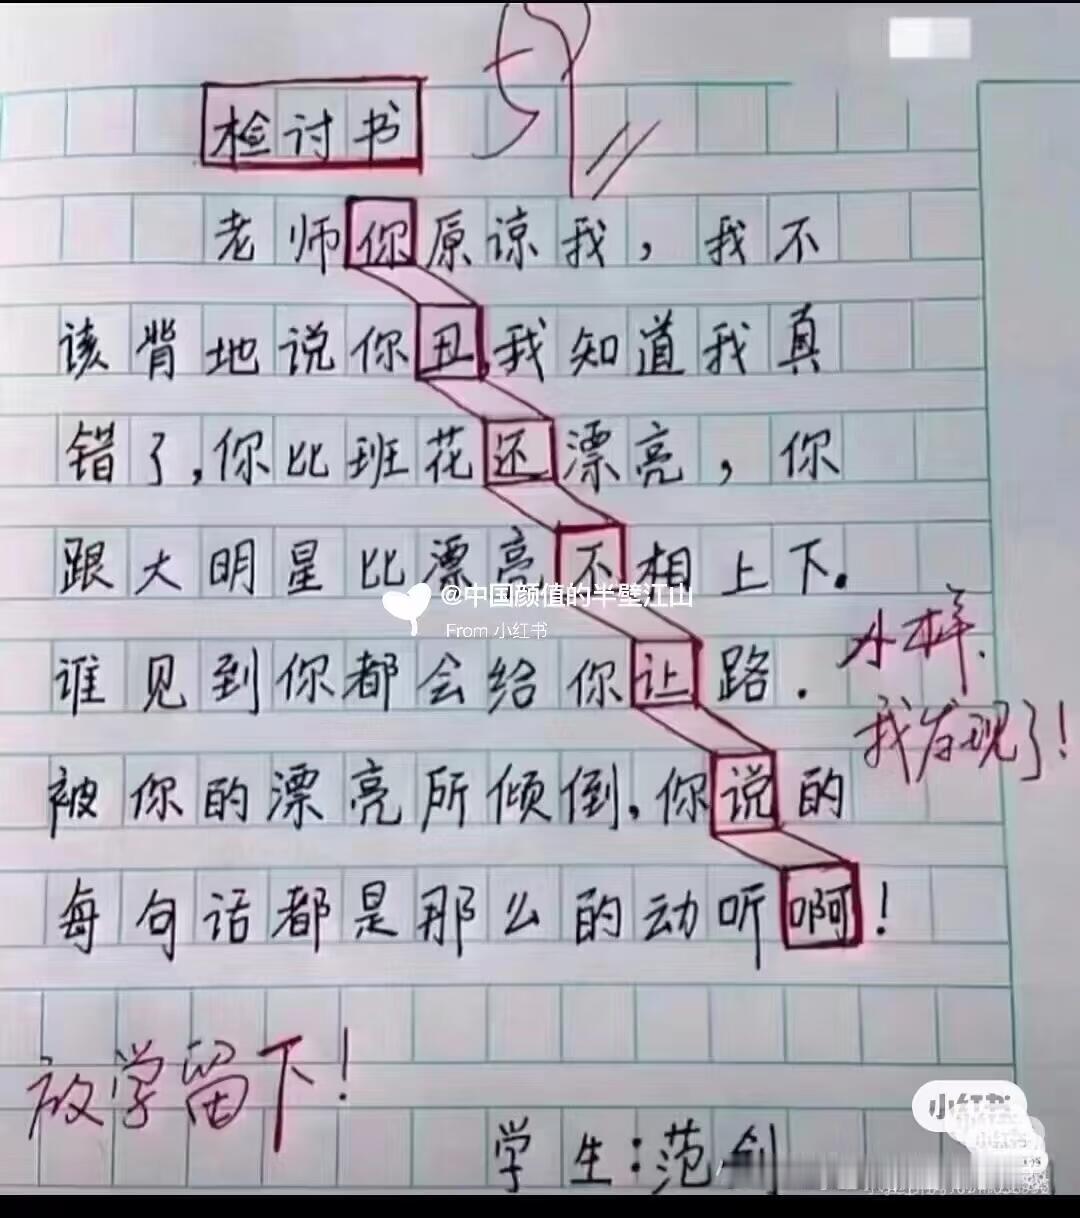 59
检讨书
老师你原谅我，我不
该背地说你丑，我知道我真
错了，你比班花还漂亮，你
跟大明星比漂亮不相上下。
@中国颜值的半壁江山
From 小红书
谁见到你都会给你让路．
小样．
我发现了！
被你的漂亮所倾倒，你说的
每句话都是那么的动听啊！
放学留下！
学生：范剑
小红书